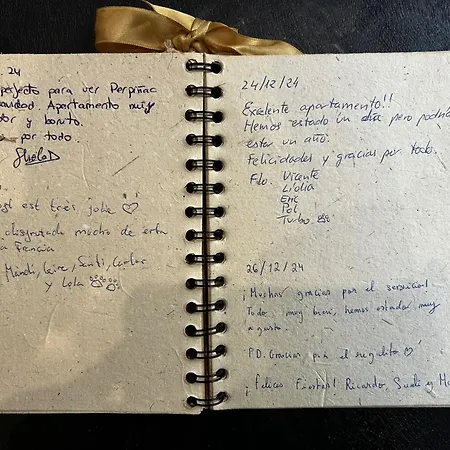 24
perfecto para ver Perpiñac
Apartamento muy
y bonito.
por todo.
est très jolie ♡
disfrutado mucho de esta
a Francia
Mandi, Leire, Santi, Carlos
y Lola
24/12/24
Excelente apartamento!!
Hemos estado un día pero podría
estar un año.
Felicidades y gracias por todo.
Fdo. Vicente
Lidia
Eric
Pol
Turbo
26/12/24
¡Muchas gracias por el servicio!
Todo muy bien, hemos estado muy
a gusto.
P.D. Gracias por el regalito ♡
¡Felices Fiestas! Ricardo, y